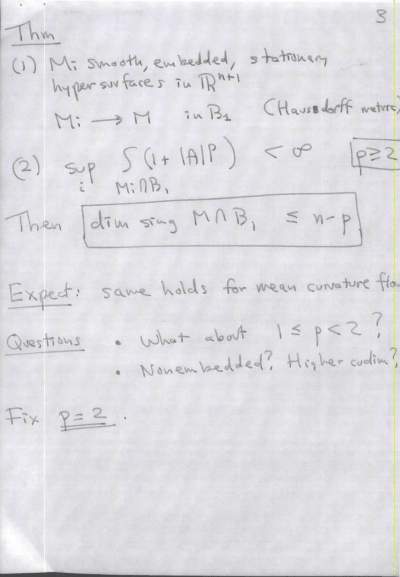 3
Thm
(1) Mi smooth, embedded, stationary
hypersurfaces in ℝⁿ⁺¹
Mi → M in B₁ (Hausdorff metric)
(2) sup_i ∫_{Mi∩B₁} (1 + |A|ᵖ) < ∞ p≥2
Then dim sing M∩B₁ ≤ n-p
Expect: same holds for mean curvature flo
Questions • What about 1 ≤ p < 2?
• Nonembedded? Higher codim?
Fix p = 2.